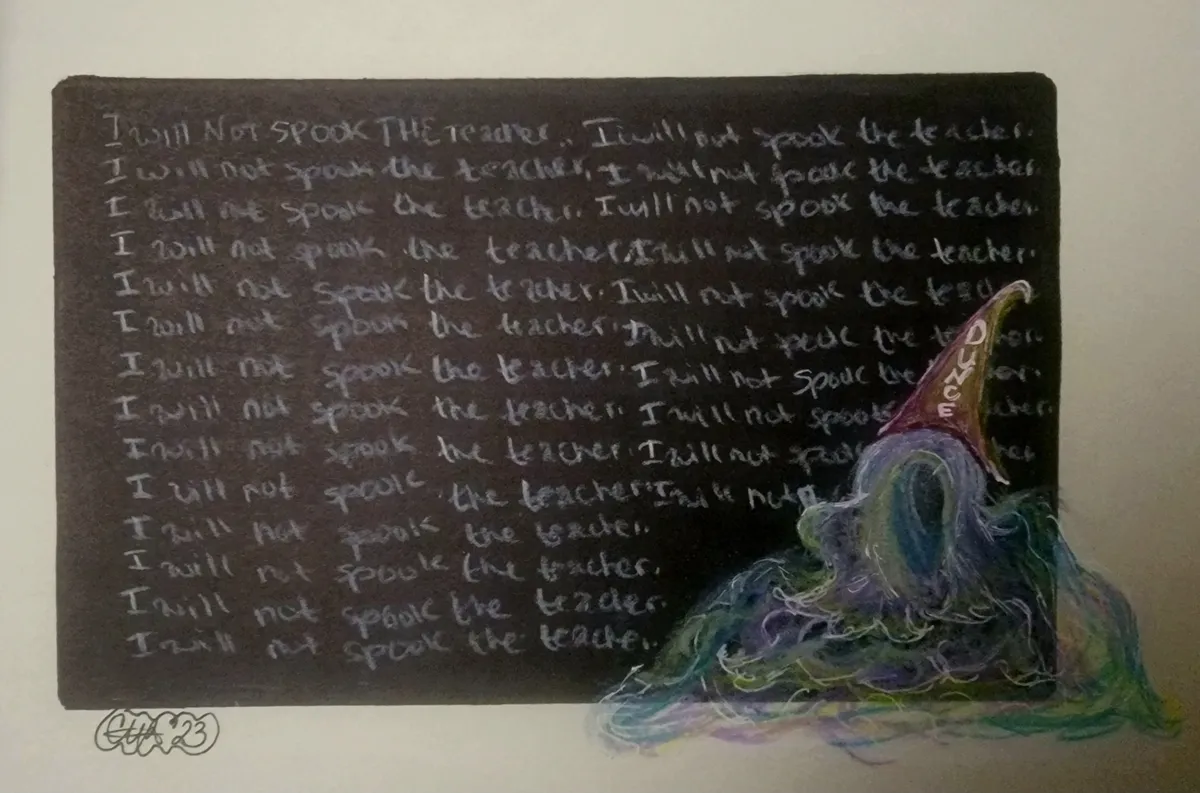 I will NOT SPOOK THE Teacher.. I will not spook the teacher.
I will not spook the teacher. I will not spook the teacher.
I will not spook the teacher. I will not spook the teacher.
I will not spook the teacher. I will not spook the teacher.
I will not spook the teacher. I will not spook the teac
I will not spook the teacher. I will not the
I will not spook the teacher. I will not spook the
I will not spook the teacher. I will not spook cher.
I will not spook the teacher. I will not spook her
I will not spook the teacher. I will not
I will not spook the teacher.
I will not spook the teacher.
I will not spook the teacher.
I will not spook the teacher.
DUNCE
23